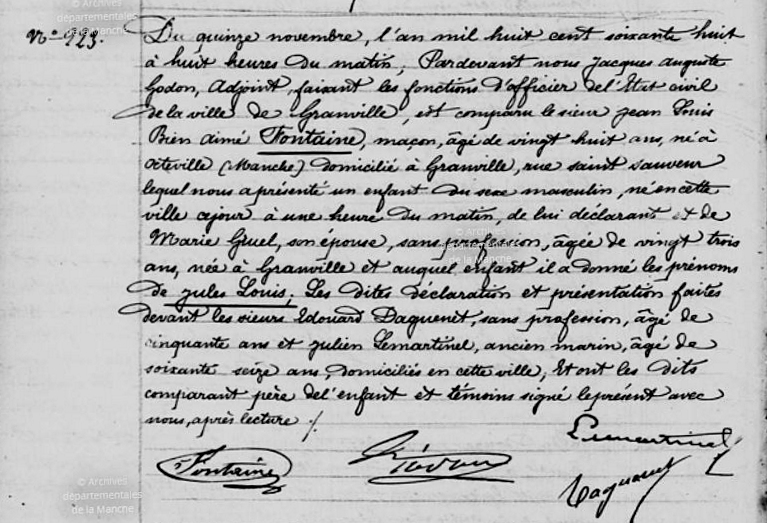 © Archives
départementales
de la Manche
N° 223.
Du quinze novembre, l'an mil huit cent soixante huit
à huit heures du matin, Pardevant nous Jacques auguste
Godon, Adjoint, faisant les fonctions d'officier de l'Etat civil
de la ville de Granville, est comparu le sieur Jean Louis
Bien aimé Fontaine, maçon, âgé de vingt huit ans, né à
Octeville (Manche) domicilié à Granville, rue saint sauveur
lequel nous a présenté un enfant du sexe masculin, né en cette
ville cejour à une heure du matin, de lui déclarant et de
Marie Gruel, son épouse, sans profession, âgée de vingt trois
ans, née à Granville et auquel enfant il a donné les prénoms
de Jules Louis, Les dites déclaration et présentation faites
devant les sieurs Edouard Daguenet, sans profession, âgé de
cinquante ans et Julien Lemartinel, ancien marin, âgé de
soixante seize ans, domiciliés en cette ville, Et ont les dits
comparant père de l'enfant et témoins signé le présent avec
nous, après lecture ./.
Lemartinel
Fontaine Godon
Daguenet
© Archives
départementales
de la Manche
© Archives
départementales
de la Manche